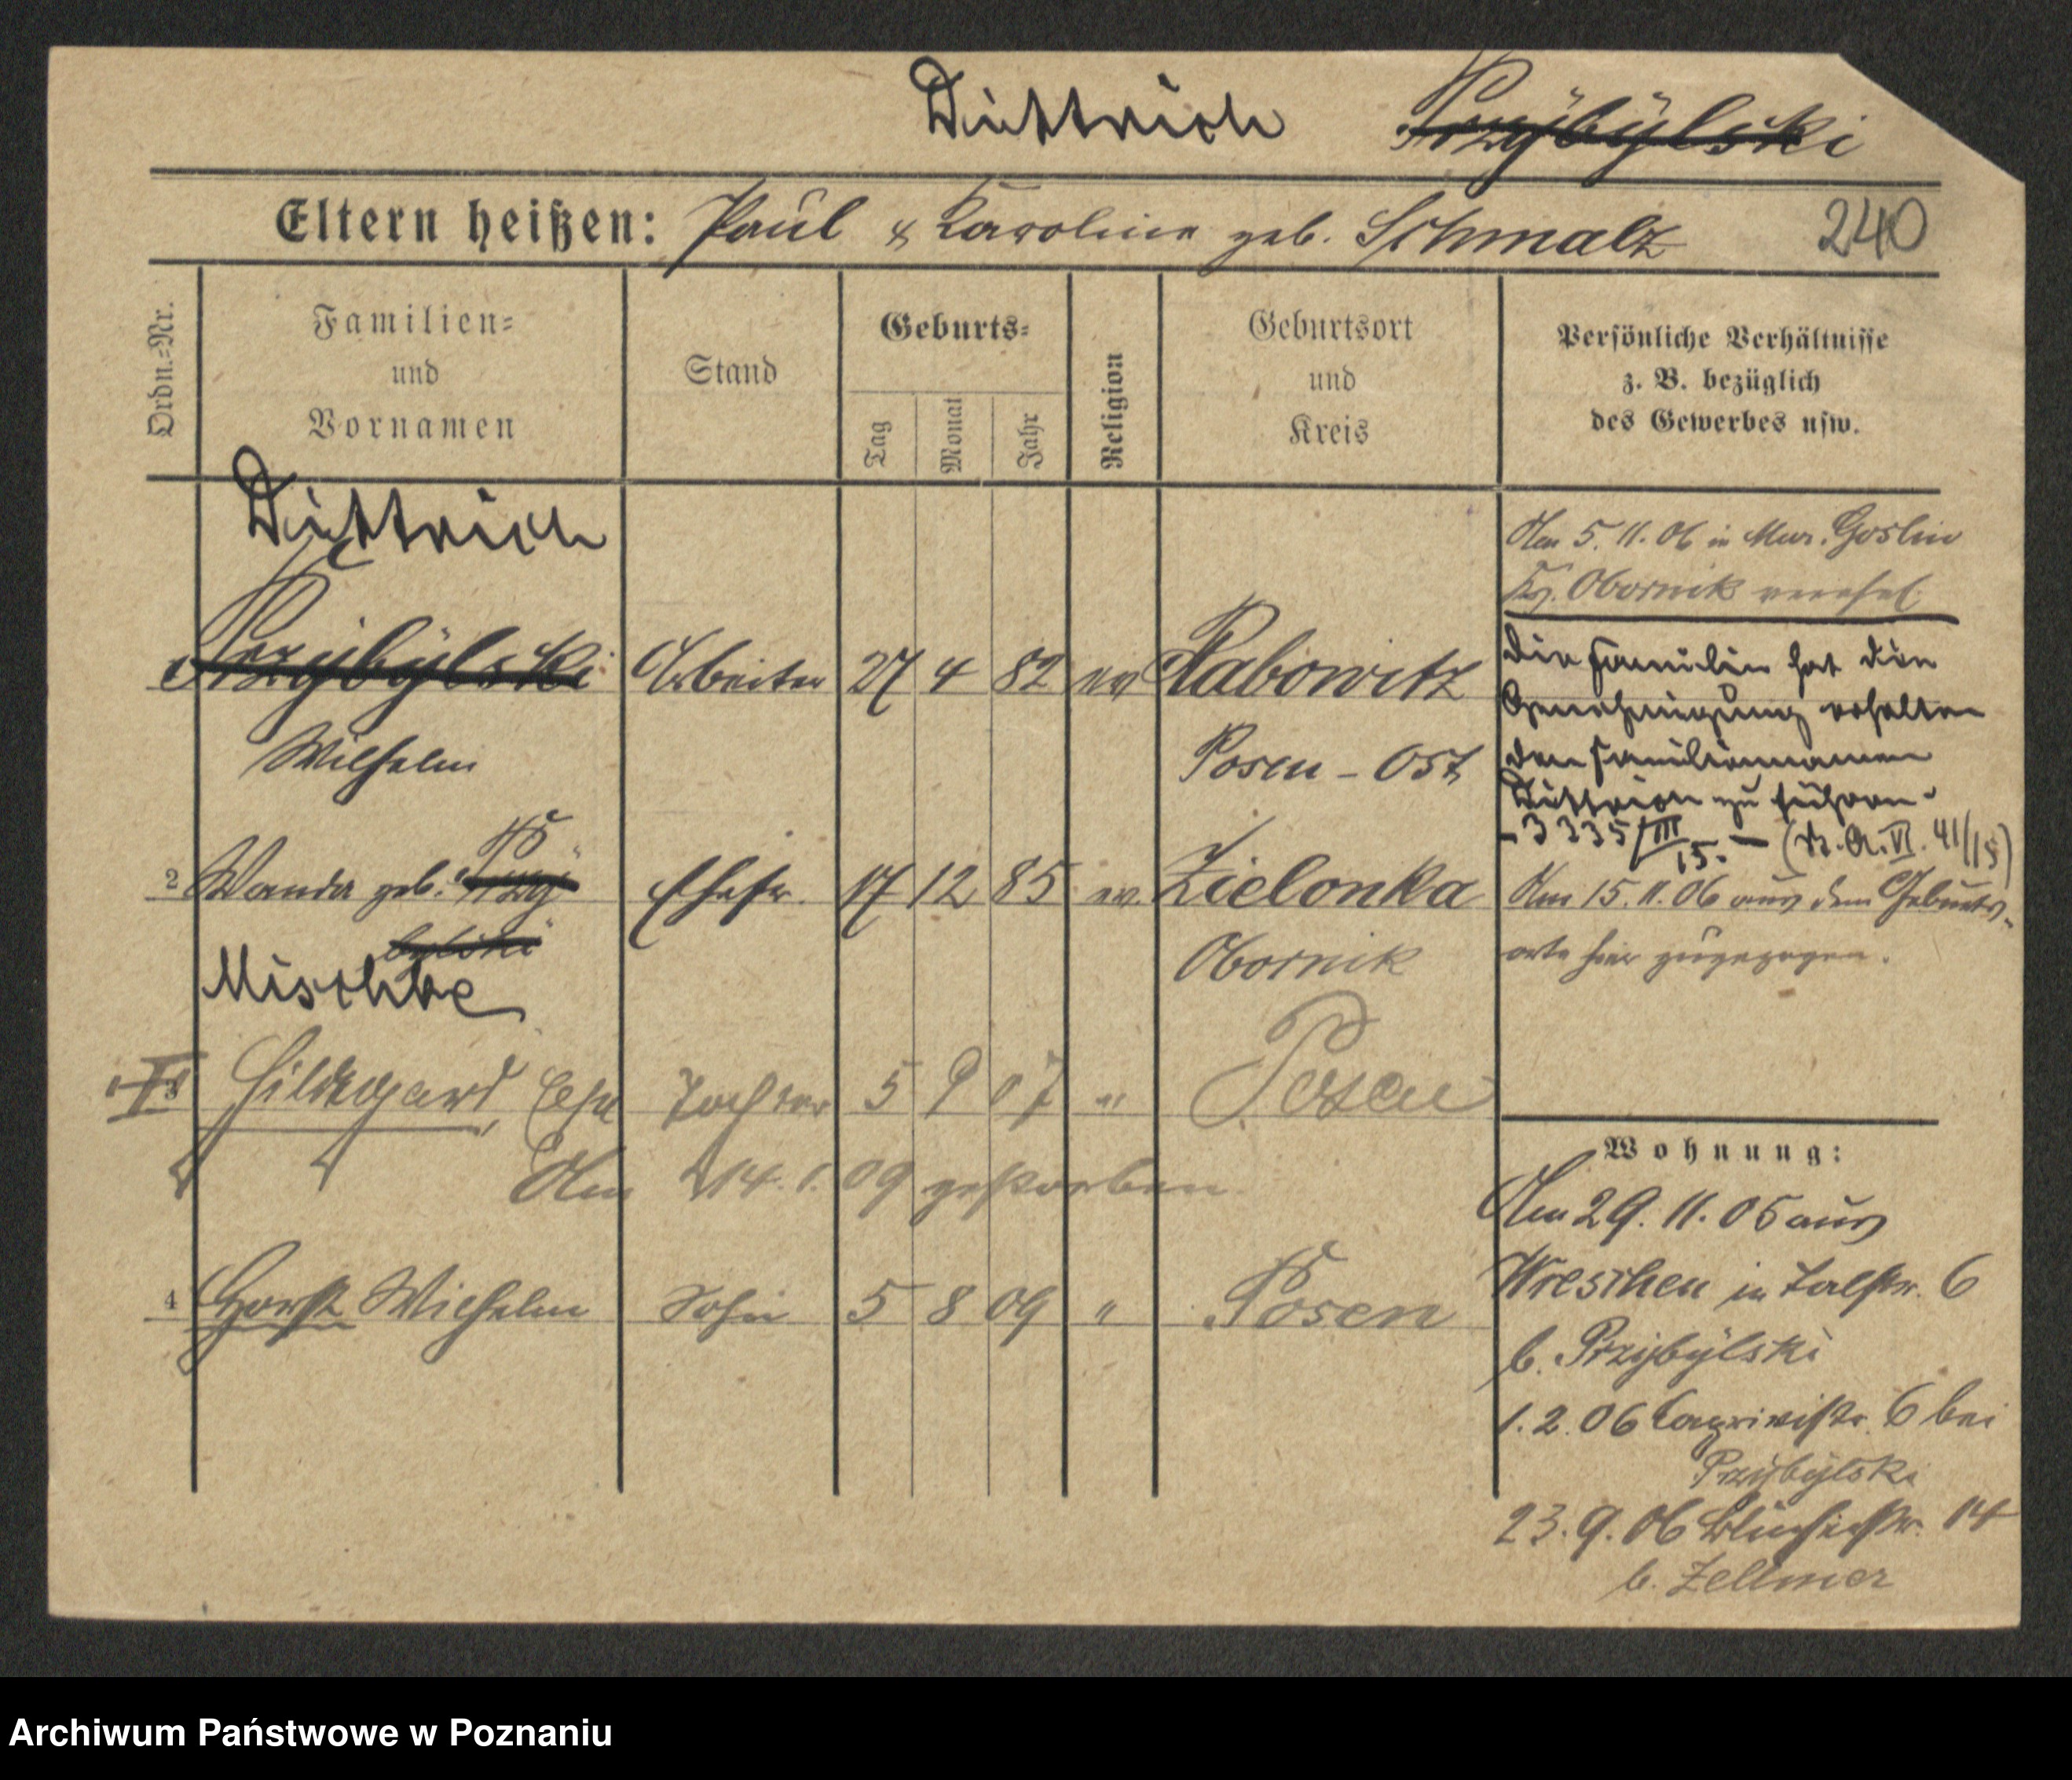 Dittrich Przÿbÿlski
Eltern heißen: Paul & Karoline geb. Schmalz 240
Ordn.-Nr.
Familien-
und
Vornamen
Stand
Geburts-
Tag
Monat
Jahr
Religion
Geburtsort
und
Kreis
Persönliche Verhältnisse
z. B. bezüglich
des Gewerbes usw.
Dittrich
Przÿbÿlski Arbeiter 27 4 82 ev Rabowitz
Wilhelm Posen-Ost
Am 5. 11. 06 in Mur. Goslin
Kr. Obornik verehel.
Die Familie hat die
Genehmigung erhalten
den Familiennamen
Dittrich zu führen.
- 3335/III 15. - (R.A.VI. 41/15)
2 Wanda geb. Przÿ- Ehefr. 17 12 85 ev. Zielonka
bylski Obornik
Mischke
Am 15. 11. 06 aus dem Geburts-
orte hier zugezogen.
3 Hildegard, Tochter 5 9 07 " Posen
Am 14. 1. 09 gestorben
4 Horst Wilhelm Sohn 5 8 09 " Posen
Wohnung:
Am 29. 11. 05 aus
Wreschen in Talstr. 6
b. Przÿbÿlski
1. 2. 06 Caprivistr. 6 bei
Przÿbÿlski
23. 9. 06 Blücherstr. 14
b. Zellmer
Archiwum Państwowe w Poznaniu